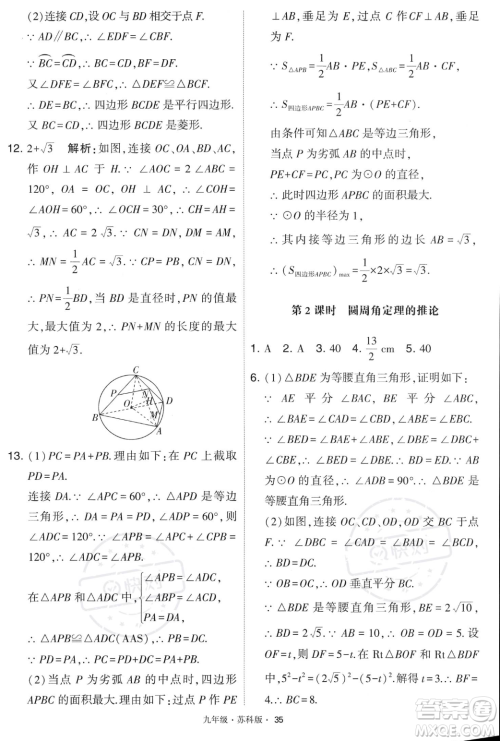 (2)连接OC,设OC与BD相交于点F.
∵AD∥BC,∴∠ADF=∠CBF.
又∠DFE=∠BFC,DF=BF,
∴△DEF≌△BCF.
∴DE=BC.∴四边形BCDE是平行四边形.
又BC=CD,∴四边形BCDE是菱形.
12. 2+√3 解析:如图,连接OC、OA、BD、OD,
作OH⊥AC于H.∵∠AOC=2∠ABC=
120°,OA=OC,OH⊥AC,∴∠COH=
∠AOH=60°.∴∠OCH=30°.∴CH=AH=
√3,∴AC=2√3.∵CN=DN,DM=AM,
∴MN=1/2 AC=√3.∵CP=PB,CN=DN,
∴PN=1/2 BD.当BD是直径时,PN的值最
大,最大值为2,∴PM+MN的最大值为
2+√3.
C
P
N
D
O
H
M
B
A
13. (1)PC=PA+PB.理由如下:在PC上截取
PD=PA.
连接DA.∵∠APC=60°,∴△APD是等边
三角形,∴DA=PA=PD,∠ADP=60°.
∴∠ADC=120°.∵∠APB=∠APC+∠BPC=
120°.∴∠APB=∠ADC.
在△APB和△ADC中,{∠APB=∠ADC,
∠ABP=∠ACD,
AP=AD,
∴△APB≌△ADC(AAS).∴PB=DC.
又PD=PA,∴PC=PA+PB.
(2)当点P为劣弧AB的中点时,四边形
APBC的面积最大.理由如下:过点P作PE
⊥AB,垂足为E,过点C作CF⊥AB,
垂足为F.
∵S△APB=1/2 AB·PE,S△ABC=1/2 AB·CF,
∴S四边形APBC=1/2 AB·(PE+CF).
由条件可知△ABC是等边三角形.
当点P为劣弧AB的中点时,
PE+CF=PC,PC为⊙O的直径,
∴此时四边形APBC的面积最大.
∵⊙O的半径为1,
∴其内接等边三角形的边长AB=√3.
∴(S四边形APBC)max=1/2×2×√3=√3.
第2课时 圆周角定理的推论
1. A 2. A 3. 40 4. 13/2 cm 5. 40
6. (1)△BDE为等腰直角三角形,证明如下:
∵AE平分∠BAC,BE平分∠ABC,
∴∠BAE=∠CAD=∠CBD,∠ABE=
∠EBC.
∵∠BED=∠BAE+∠ABE,∠DBE=
∠DBC+∠CBE,∴∠BED=∠DBE.
∴BD=ED.∵AB为直径,∴∠ADB=90°.
∴△BDE是等腰直角三角形.
(2)如图,连接OC、CD、OD,OD交BC于
点F.
∵∠DBC=∠CAD=∠BAD=∠BCD,
∴BD=DC.∵OB=OC,∴OD⊥BC.
∵△BDE是等腰直角三角形,BE=2√10,
∴BD=2√5.∵AB=10,∴OB=OD=5.设
OF=t,则DF=5-t.在Rt△BOF和
Rt△BDF中,
5²-t²=(2√5)²-(5-t)²,解得t=3,∴BF=
4.∴BC=8.
九年级·苏科版· 35